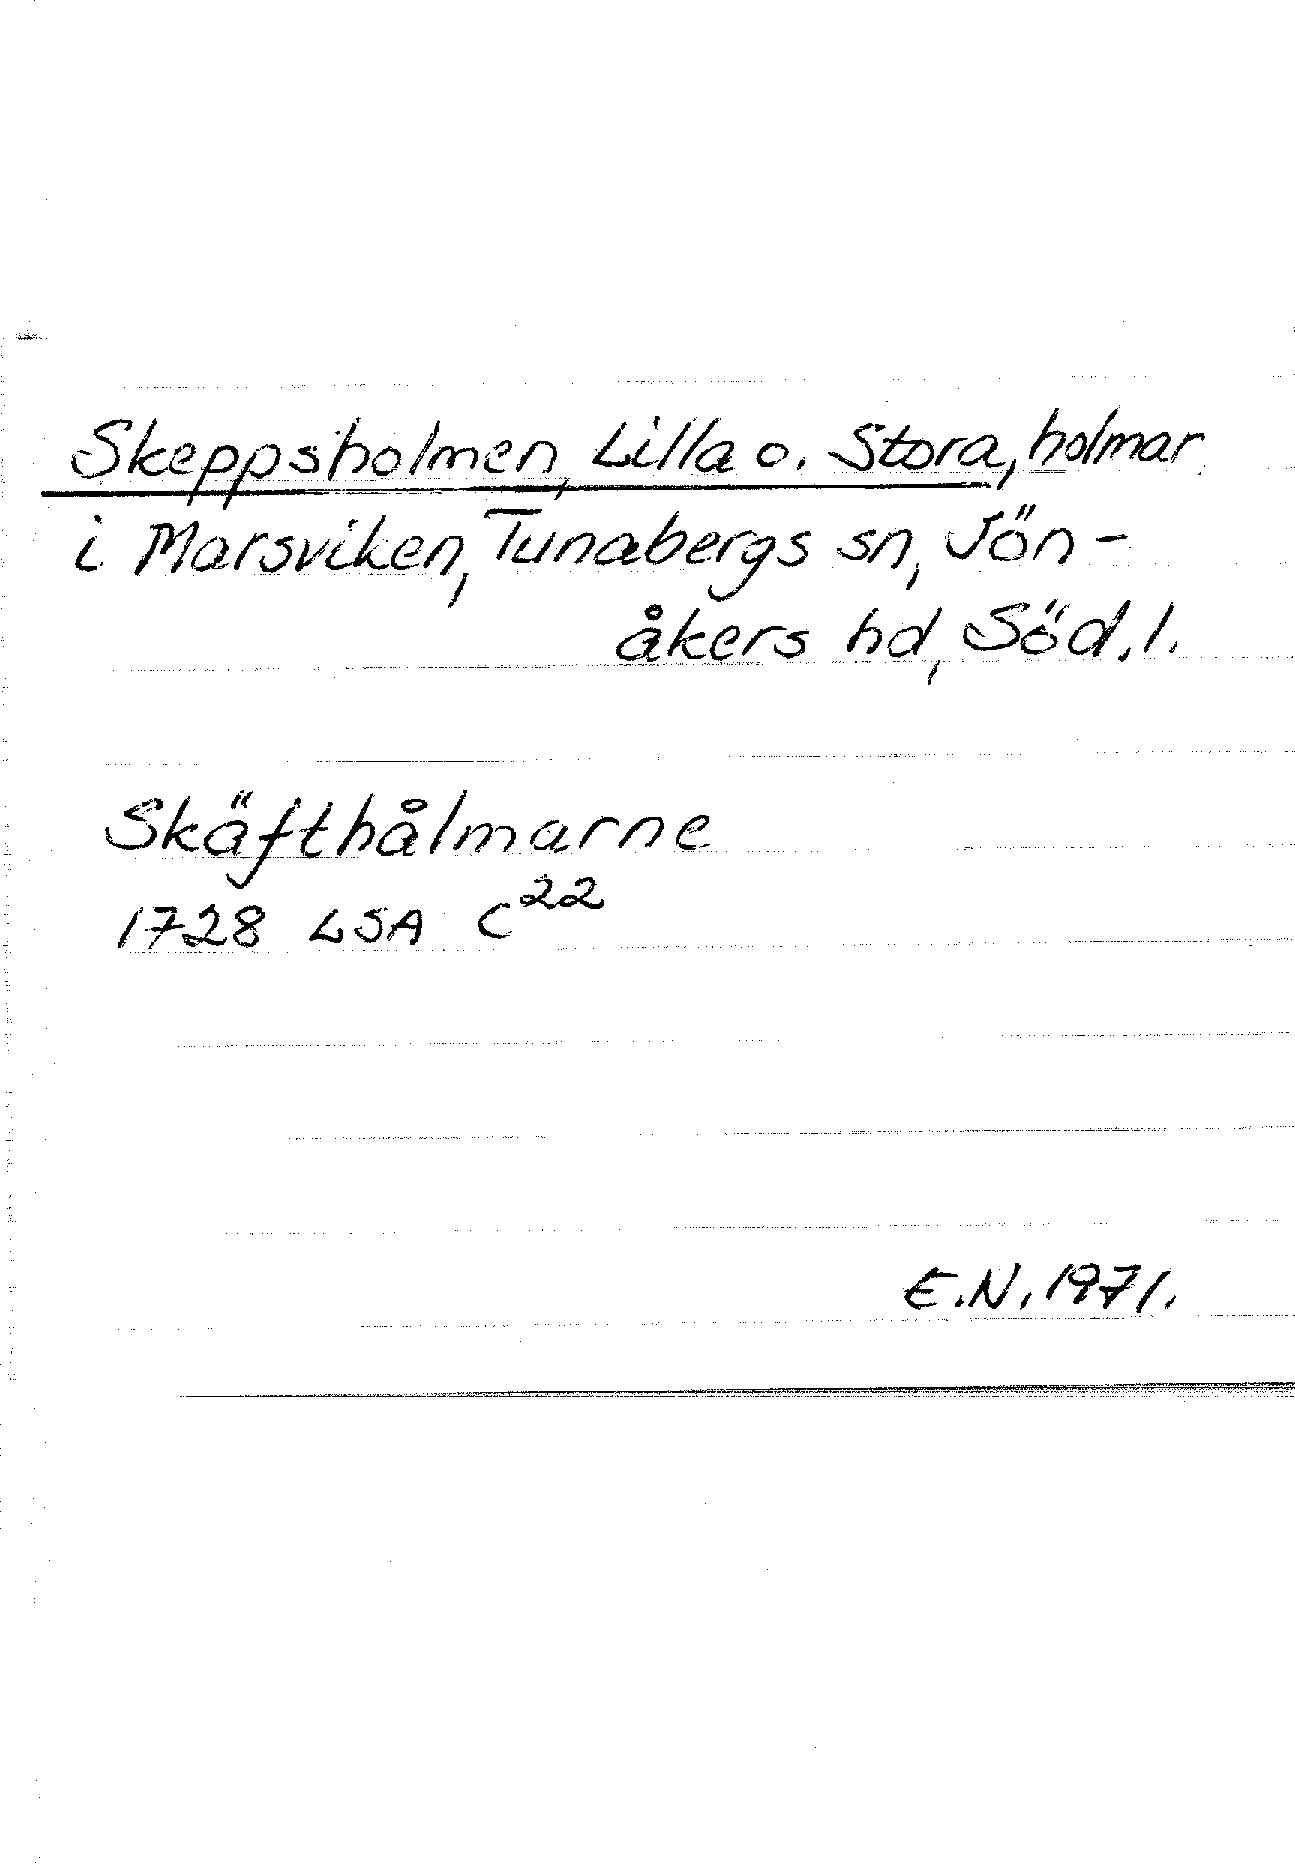 Skeppsholmen, Lilla o. Stora, holmar
i Marsviken, Tunabergs sn, Jön-
åkers hd, Söd. l.
Skäfthålmarne
1728 LSA C²²
E.N. 1971.